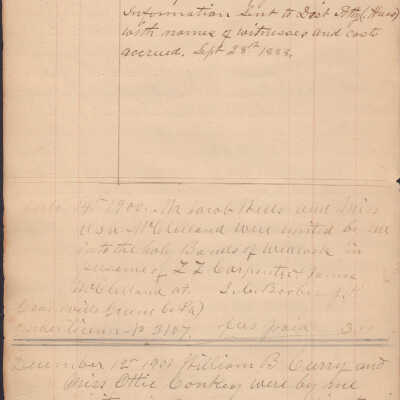 Information Sent to Dist Atty (Huss)
with names of witnesses and costs
accrued. Sept 28th 1888.
14th 1900. Mr Jacob Hills and Miss
McClelland were united by me
into the holy Bands of Wedlock in
presence of Z Z Carpenter & James
McClelland at. J. C. Barber J. P.
Greene Co Pa)
No 3107. fees paid 3.00
December 1st 1901 William B. Curry and
Miss Ottie Conkey were by me